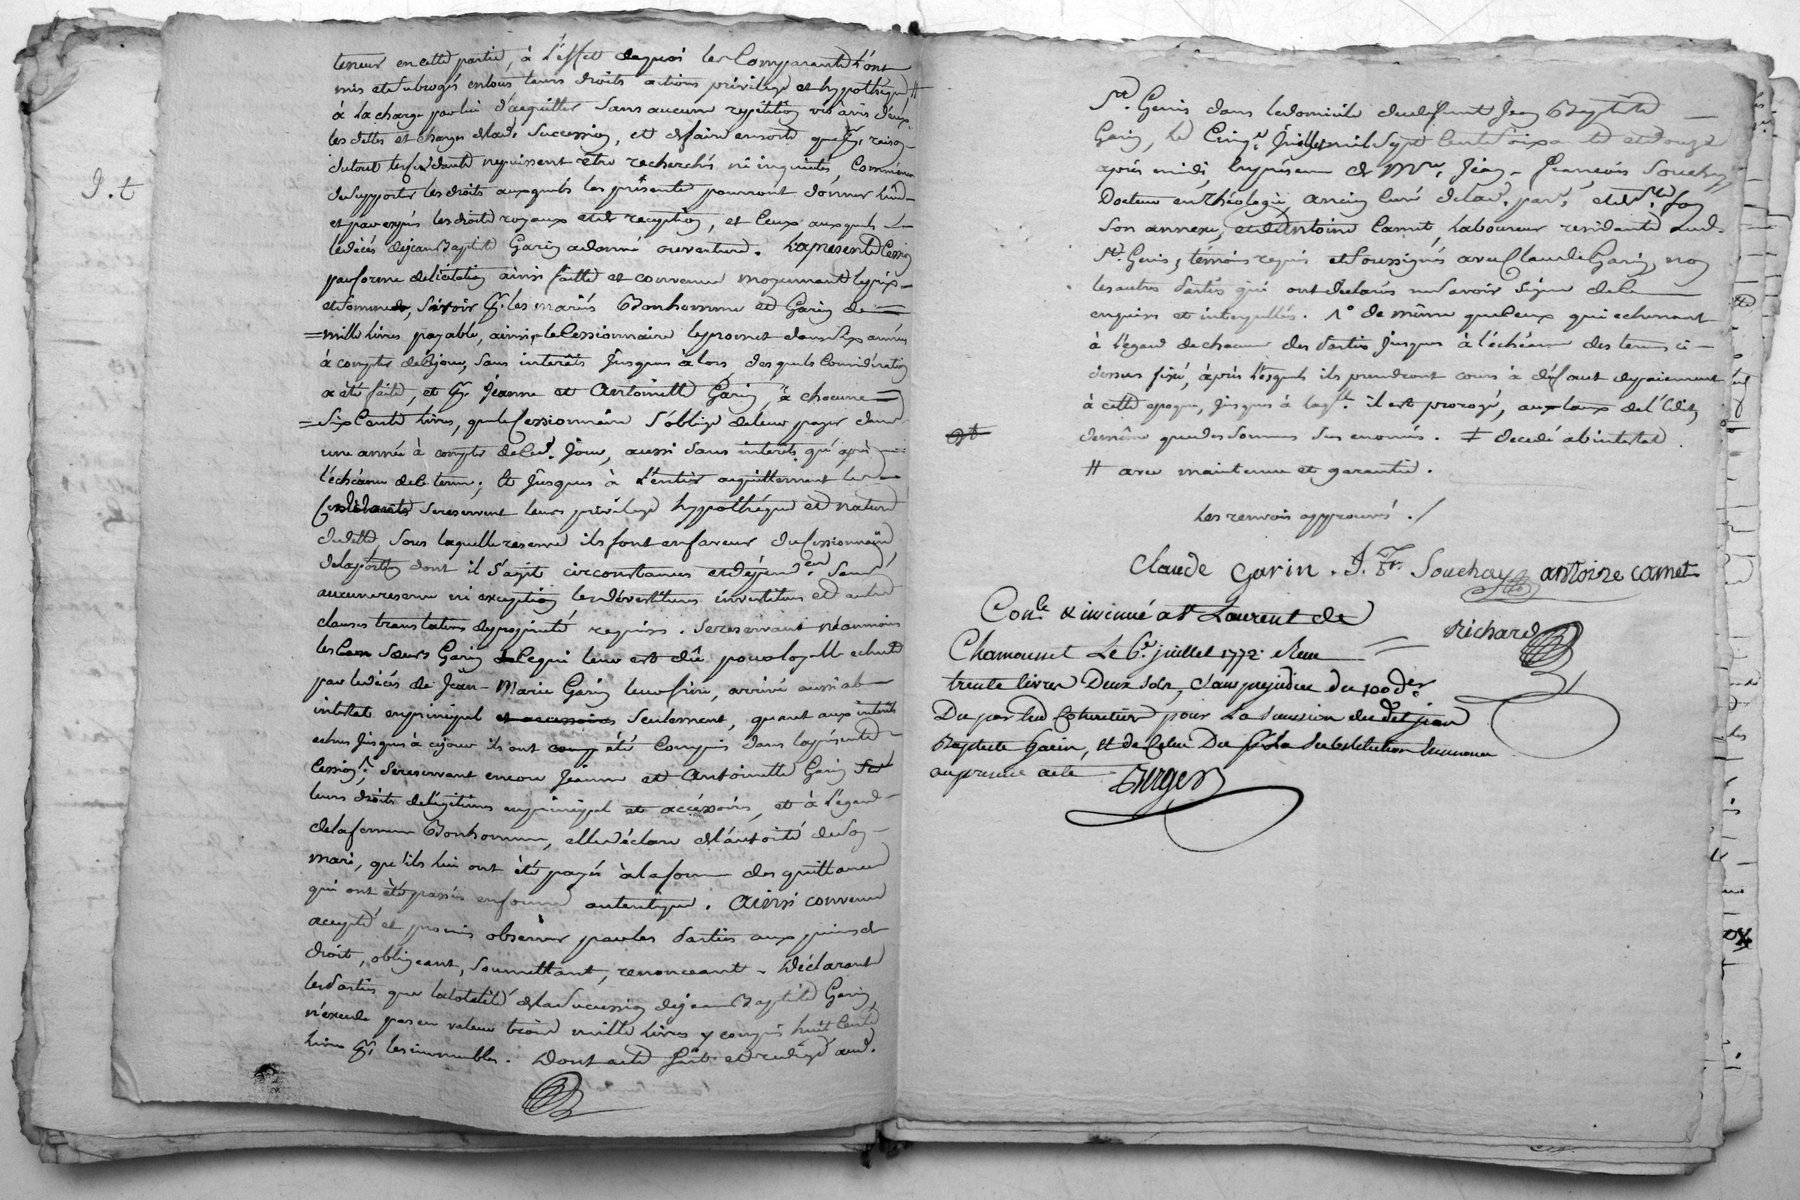 J.t
teneur en cette partie, à l'effet dequoi les Comparants l'ont
mis et subrogés entous leurs droits actions privilege et hypothèque #
à la charge par lui d'acquitter sans aucune repetition vis à vis d'eux
les dettes et charges delad. Succession, et defaire ensorte que pr. raison
dutout les cédants nepuissent être recherchés ni inquietés, Comme aussi
desupporter les droits auxquels les présentes pourront donner lieu
et par exprès les droits royaux et de reception, et Ceux auxquels
ledécès dejean Baptiste Garin adonné ouverture. Laprésente Cession
par forme delicitation ainsi faitte et convenue moyennant leprix
et sommes, Sçavoir pr. les mariés Bonhomme et Garin de
mille livres payable, ainsi que le Cessionnaire lepromet dans six années
à compter de cejour, sans interêts jusques à lors, desquels Considération
a été faite, et pr. Jeanne et Antoinette Garin, à chacune
Six Cents livres, quele Cessionnaire s'oblige deleur payer dans
une année à compter de ced. Jour, aussi sans interets qu'après
l'échéance de ce terme; et Jusques à l'entier acquittement les
Cédants sereservent leurs privilege hypothéque et nature
dudette sous laquelle reserve ils font enfaveur du Cessionnaire
delaportion dont il s'agit circonstances et dépend.ces sans
aucune reserve ni exception les dévestitures investitures et autres
clauses translatives depropriété requises. Sereservant néanmoins
les Sœurs Garin cequi leur est dû pour la joyalle echute
par ledécès de Jean-Marie Garin leur frère, arrivé aussi ab
intestat enprincipal et accessoires seulement, quant aux interêts
echus jusques à cejour ils ont été Compris dans laprésente
Cession. Sereservant encore Jeanne et Antoinette Garin
leurs droits delégitime enprincipal et accéssoires, et à l'égard
delafemme Bonhomme, elle déclare del'autorité de son
mari, qu'ils lui ont été payés à la forme des quittances
qui ont été passées enforme autentique. Ainsi convenu
accepté et promis observer par les Parties aux peines de
droit, obligeant, soumettant, renonceant. Déclarant
les Parties que la totalité dela Succession dejean Baptiste Garin
n'excede pas en valeur trois mille livres y compris huit Cents
livres pr. les immeubles. Dont acte fait et redigé aud.
St. Genis dans ledomicile dudefunt Jean Baptiste
Garin, le Cinq.e Juillet mil Sept Cents soixante et douze
après midi, en présence de Mre. Jean-François Souchay
Docteur en théologie, ancien Curé delad. par. et de Ste. foy
son annexe, et de Antoine Camet, Laboureur residants aud.
St. Genis, témoins requis et soussignés avec Claude Garin, non
les autres Parties qui ont déclarés ne savoir signer de ce
enquises et interpellés. 1° de même que Ceux qui echerront
à l'égard de chacune des Parties jusques à l'échéance des termes ci-
dessus fixés, après lesquels ils prendront cours à défaut depaiement
à cette epoque, jusques à laqlle. il est prorogé, aux taux de l'Edit,
demême que des sommes sus enoncées. ≠ decedé abintestat.
# avec maintenue et garantie.
Les renvois approuvés ./
Claude Garin . J. Fr. Souchay antoine camet
Richard
Conlé & insinué a St Laurent de
Chamousset Le 6e. juillet 1772 Reçu
trente livres Deux sols, Sans prejudice du 100 der
Du par led Cohéritier pour La Succession dudit jean
Baptiste Garin, et de Celui Du pr. La Substitution
au present acte Berger